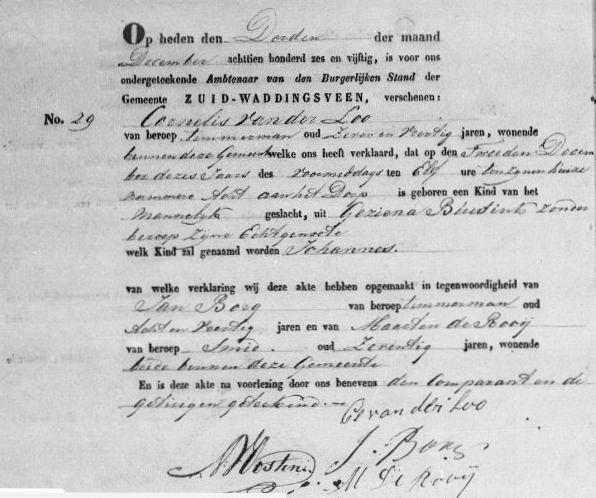 Op heden den Derden der maand
December achttien honderd zes en vijftig, is voor ons
ondergeteekende Ambtenaar van den Burgerlijken Stand der
Gemeente ZUID-WADDINGSVEEN, verschenen:
No. 29 Cornelis van der Loo
van beroep timmerman oud Zeven en Veertig jaren, wonende
binnen deze Gemeente welke ons heeft verklaard, dat op den Tweeden Decem
ber dezes Jaars des voormiddags ten Elf ure ten zynen huize
nummero Acht aan het Dorp is geboren een Kind van het
Mannelyk geslacht, uit Geziena zonder
beroep Zyne Echtgenoote
welk Kind zal genaamd worden Johannes.
van welke verklaring wij deze akte hebben opgemaakt in tegenwoordigheid van
Jan Borg van beroep timmerman oud
Acht en Veertig jaren en van Maarten de Rooij
van beroep Smid. oud Zeventig jaren, wonende
beide binnen deze Gemeente
En is deze akte na voorlezing door ons benevens den Comparant en de
getuigen geteekend.
C van der Loo
J. Borg
M de Rooij